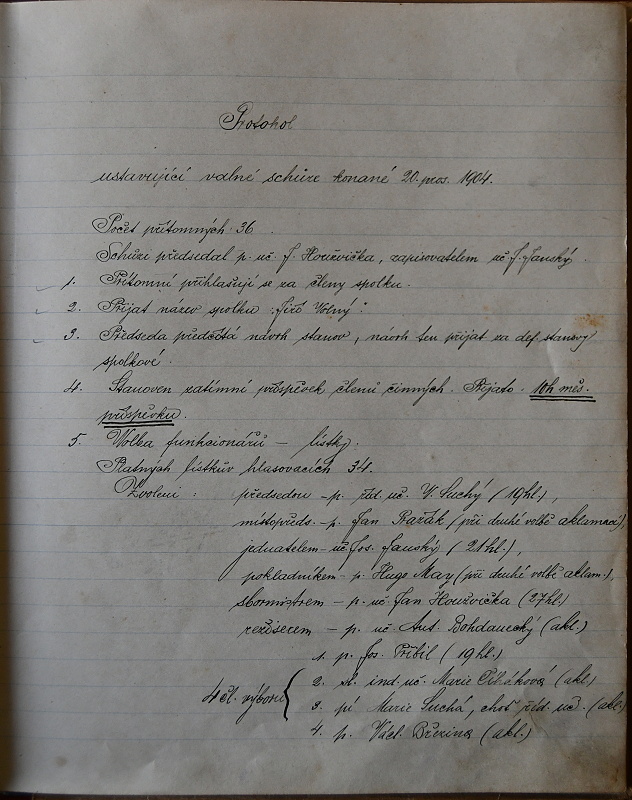 Protokol
ustavující valné schůze konané 20. pros. 1904.
Počet přítomných 36
Schůzi předsedal p. uč. J. Houžvička, zapisovatelem uč. J. Janský.
1. Přítomní přihlašují se za členy spolku.
2. Přijat název spolku: „Jirí Volný".
3. Předseda předčítá návrh stanov, návrh ten přijat za def. stanovy
spolkové.
4. Stanoven zatímní příspěvek členů činných. Přijato. 10h měs.
příspěvku.
5. Volba funkcionářů – lístky.
Platných lístkův hlasovacích 34.
Zvoleni: předsedou – p. říd. uč. V. Suchý (19hl.),
místopředs. – p. Jan (při druhé volbě aklamací),
jednatelem – uč. Jos. Janský (21hl.),
pokladníkem – p. Hugo May (při druhé volbě aklam.),
sbormistrem – p. uč. Jan Houžvička (27hl.)
režiserem – p. uč. Ant. Bohdanecký (akl.)
1. p. Jos. Přibil (19hl.)
4 čl. výboru 2. sl. ind. uč. Marie (akl.)
3. pí Marie Suchá, choť říd. uč. (akl.)
4. p. Václ. Březina (akl.)